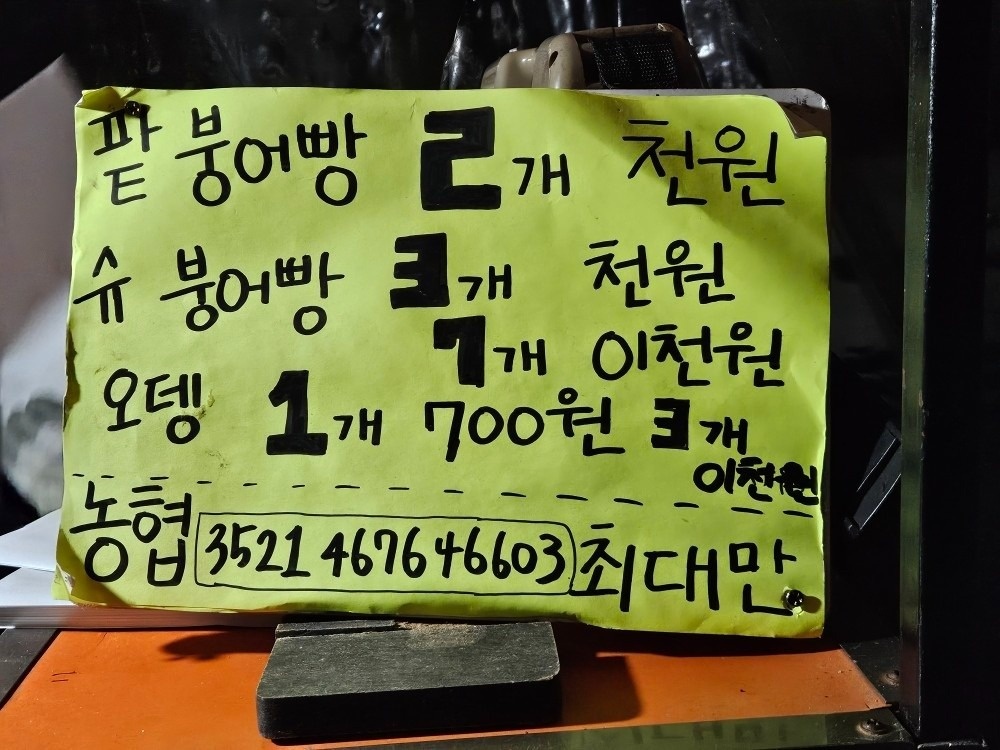 팥 붕어빵 2개 천원
슈 붕어빵 3개 천원
7개 이천원
오뎅 1개 700원 3개
이천원
농협 3521 467646603 최대만